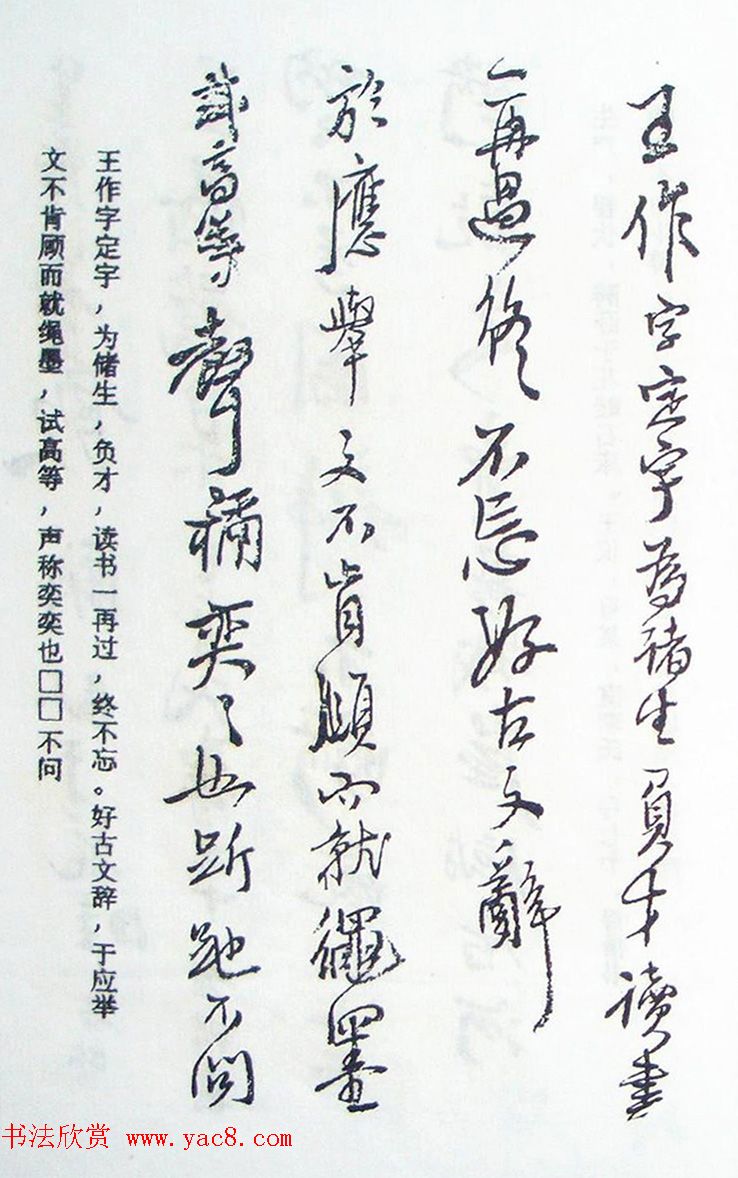 王作字定宇為禇生負才讀書
一再過終不忘好古文辭
於應舉文不肯顧而就繩墨
試高等聲稱奕〻也跅跎不問
王作字定宇，为储生，负才，读书一再过，终不忘。好古文辞，于应举
文不肯顾而就绳墨，试高等，声称奕奕也□□不问
书法欣赏 www.yac8.com